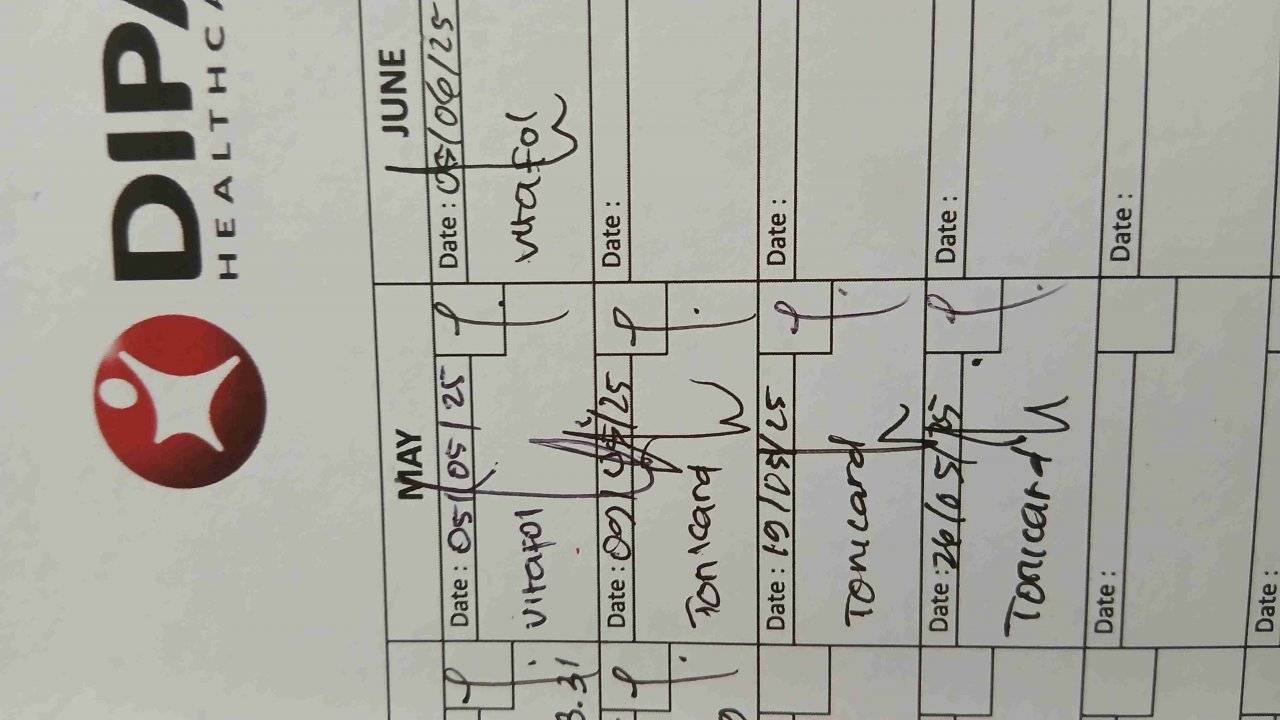 DIPA
HEALTHCA
MAY
Date : 05/05/25
Vitafol
Date : 09/05/25
Tonicard
Date : 19/05/25
Tonicard
Date : 26/05/25
Tonicard
Date :
Date :
JUNE
Date : 05/06/25
Vitafol
Date :
Date :
Date :
Date :
3.31